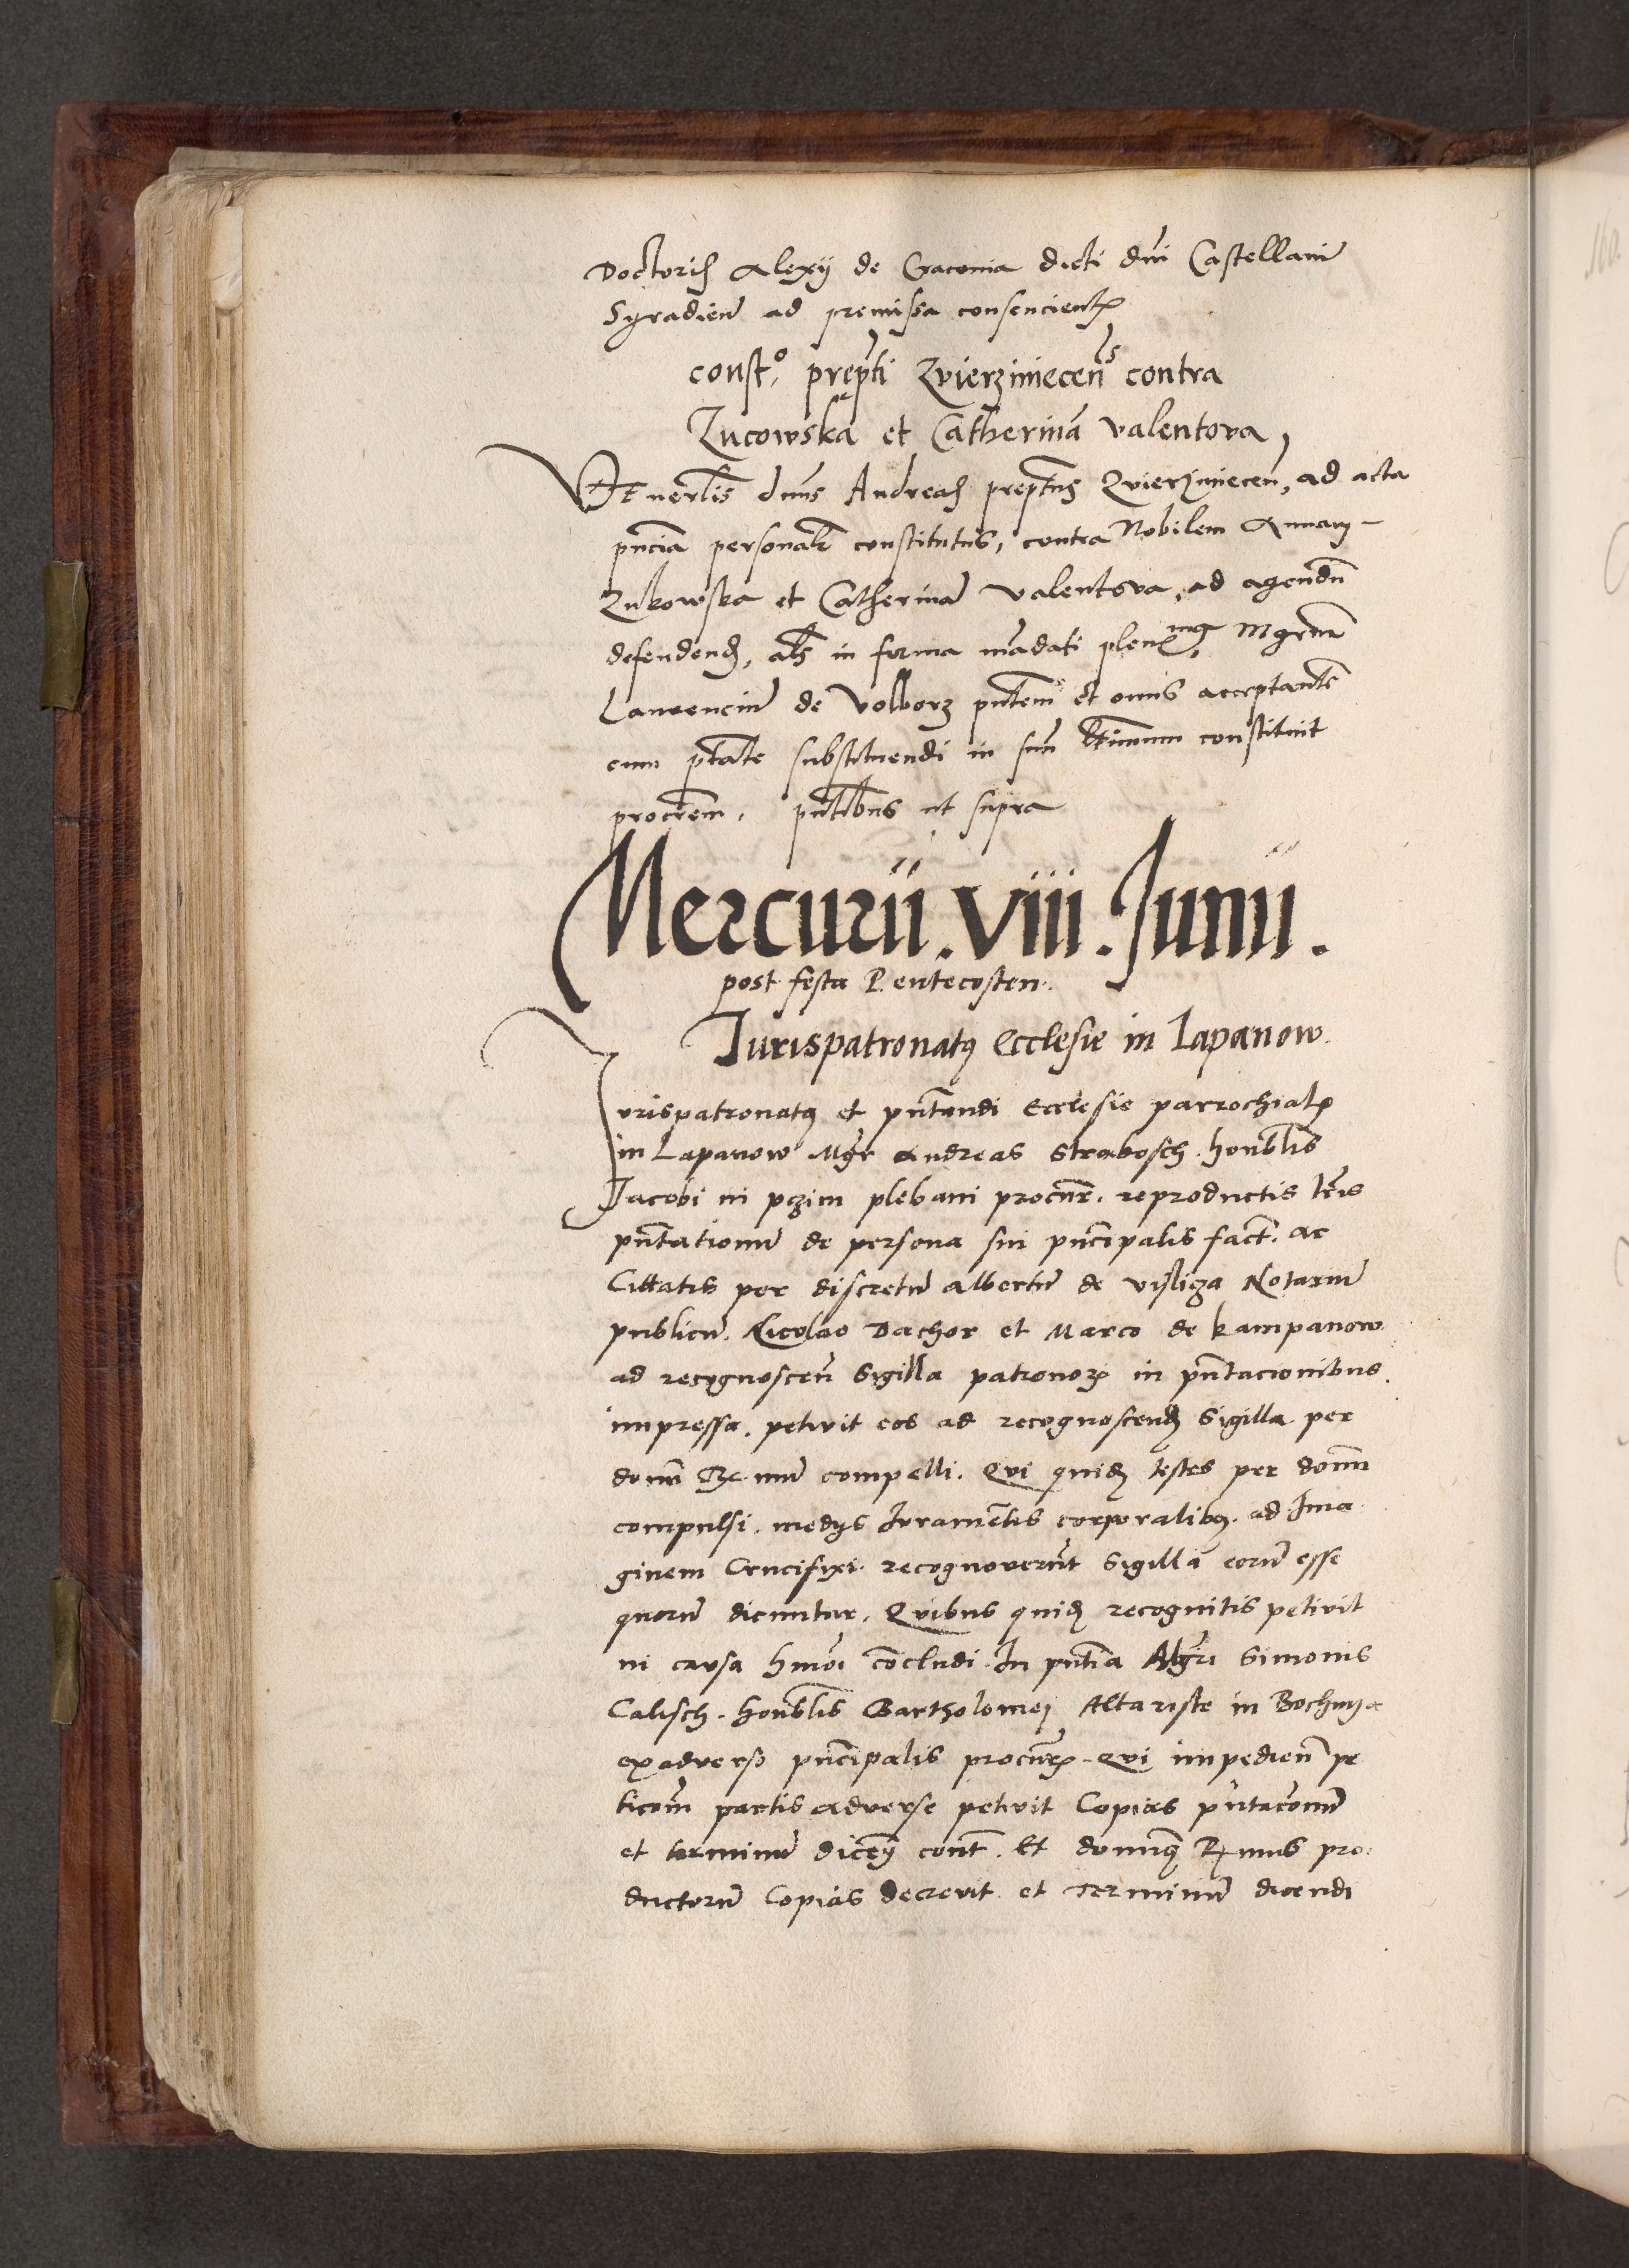 Doctoris Alexy de Cracovia dicti dni Castellani
Syradien ad premissa consencientz
constᵒ. prepti Zvierziniecens contra
Zucowska et Catherinā Valentova
Venerlis dnus Andreas preptus Zvierziniecen, ad acta
pncia personalr constitutus, contra Nobilem Annam
Zukowska et Catherinā Valentova, ad agendū
defendend, als in forma mādati pleni, mgrm Mgrum
Laurenciū de Volborz pntem et onus acceptantē
cum ptate substituendi in suū ltimum constituit
procrem, pntibus ut supra
Mercurii . viii . Junii .
post festa Pentecosten.
Jurispatronatq Ecclesie in Lapanow.
Jurispatronatq et pntandi Ecclesie parrochialz
in Lapanow Mgr Andreas Strabosch. honblis
Jacobi in pczim plebani procur. reproductis lris
pntationū de persona sui pncipalis fact. ac
Cittatis per discretū albertū de visliza Notariū
publicū. Nicolao Dachor et Marco de Kampanow.
ad recognoscen Sigilla patronorz in pntacionibus.
impressa. petivit eos ad recognoscend Sigilla per
domū R mum compelli. Qui quidz testes per domū
compulsi. medys Juramētis corporalibq. ad Jma
ginem Crucifixi. recognoverūt Sigilla eorū esse
quorū dicuntur. Quibus quidz recognitis petivit
in causa hmōi cōcludi. In pntia Mgri Simonis
Calisch. honblis Bartholomej Altariste in Bochnya
ex adverso pncipalis procurz. Qui impedien pe
ticōm partis adverse petivit Copias pntacōnū
et terminū dicendj cont. Et domiq R mus pro
ductorū Copias decrevit et Terminū dicendi